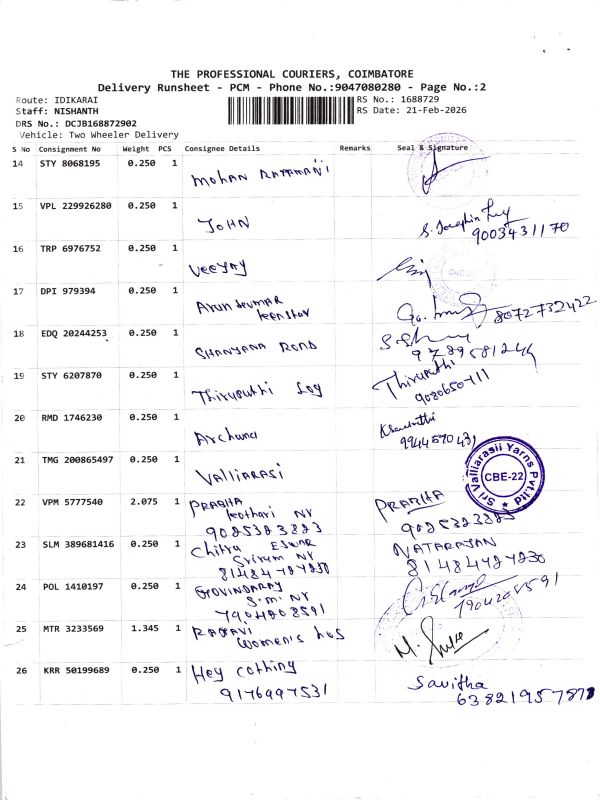 THE PROFESSIONAL COURIERS, COIMBATORE
Delivery Runsheet - PCM - Phone No.:9047080280 - Page No.:2
Route: IDIKARAI
RS No.: 1688729
Staff: NISHANTH
RS Date: 21-Feb-2026
DRS No.: DCJB168872902
Vehicle: Two Wheeler Delivery
S No Consignment No Weight PCS Consignee Details Remarks Seal & Signature
14 STY 8068195 0.250 1
MOHAN
15 VPL 229926280 0.250 1
JOHN
9003431170
16 TRP 6976752 0.250 1
Veejay
17 DPI 979394 0.250 1
Arun kumar
8072732422
18 EDQ 20244253 0.250 1
ROAD
19 STY 6207870 0.250 1
20 RMD 1746230 0.250 1
Archana
21 TMG 200865497 0.250 1
VALLIARASI
Sri Valliarasii Yarns Pvt Ltd
CBE-22
22 VPM 5777540 2.075 1 PRABHA PRABHA
kothari NY
9025323223
23 SLM 389681416 0.250 1 Chitra ESWAR NATARAJAN
Sriram NY
8148472730
24 POL 1410197 0.250 1 GOVINDARAJ
S.M. NY
7904208591
25 MTR 3233569 1.345 1 RAGAVI
Women's hos
26 KRR 50199689 0.250 1 Hey cothing Savitha
9176997531